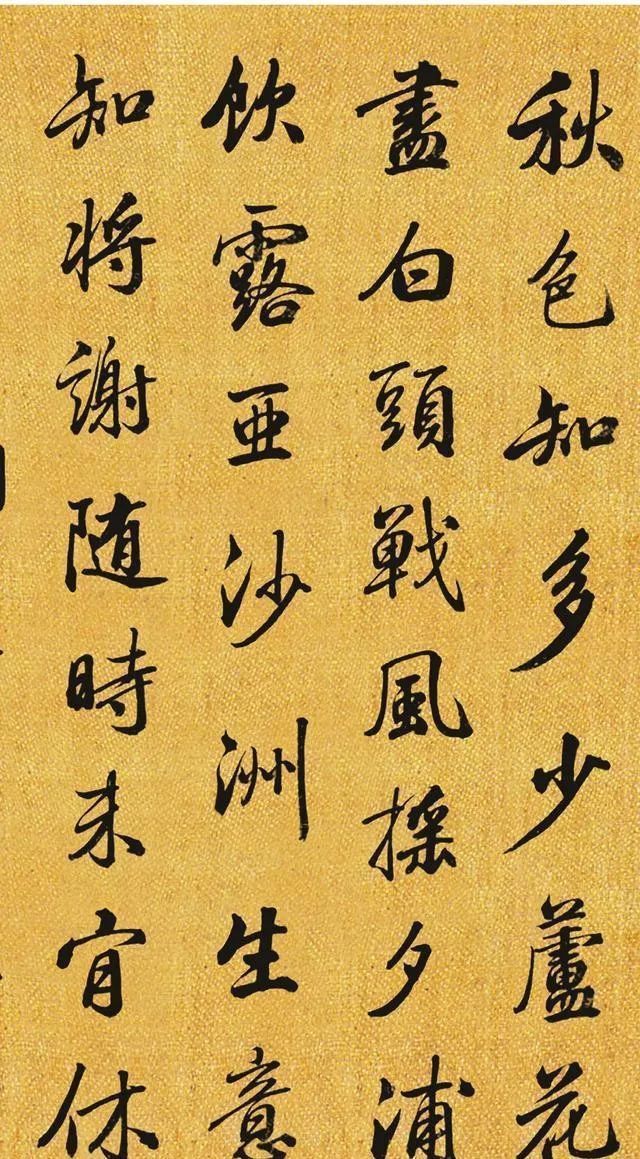 秋色知多少蘆花
盡白頭戰風搖夕浦
飲露亜沙洲生意
知将謝随時未宜休